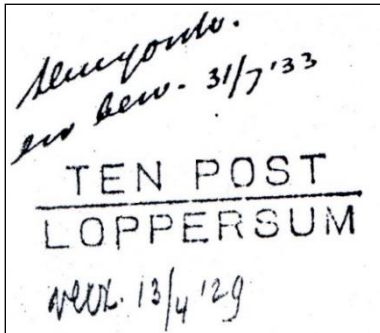 en bew. 31/7 '33
TEN POST
LOPPERSUM
verz. 13/4 '29